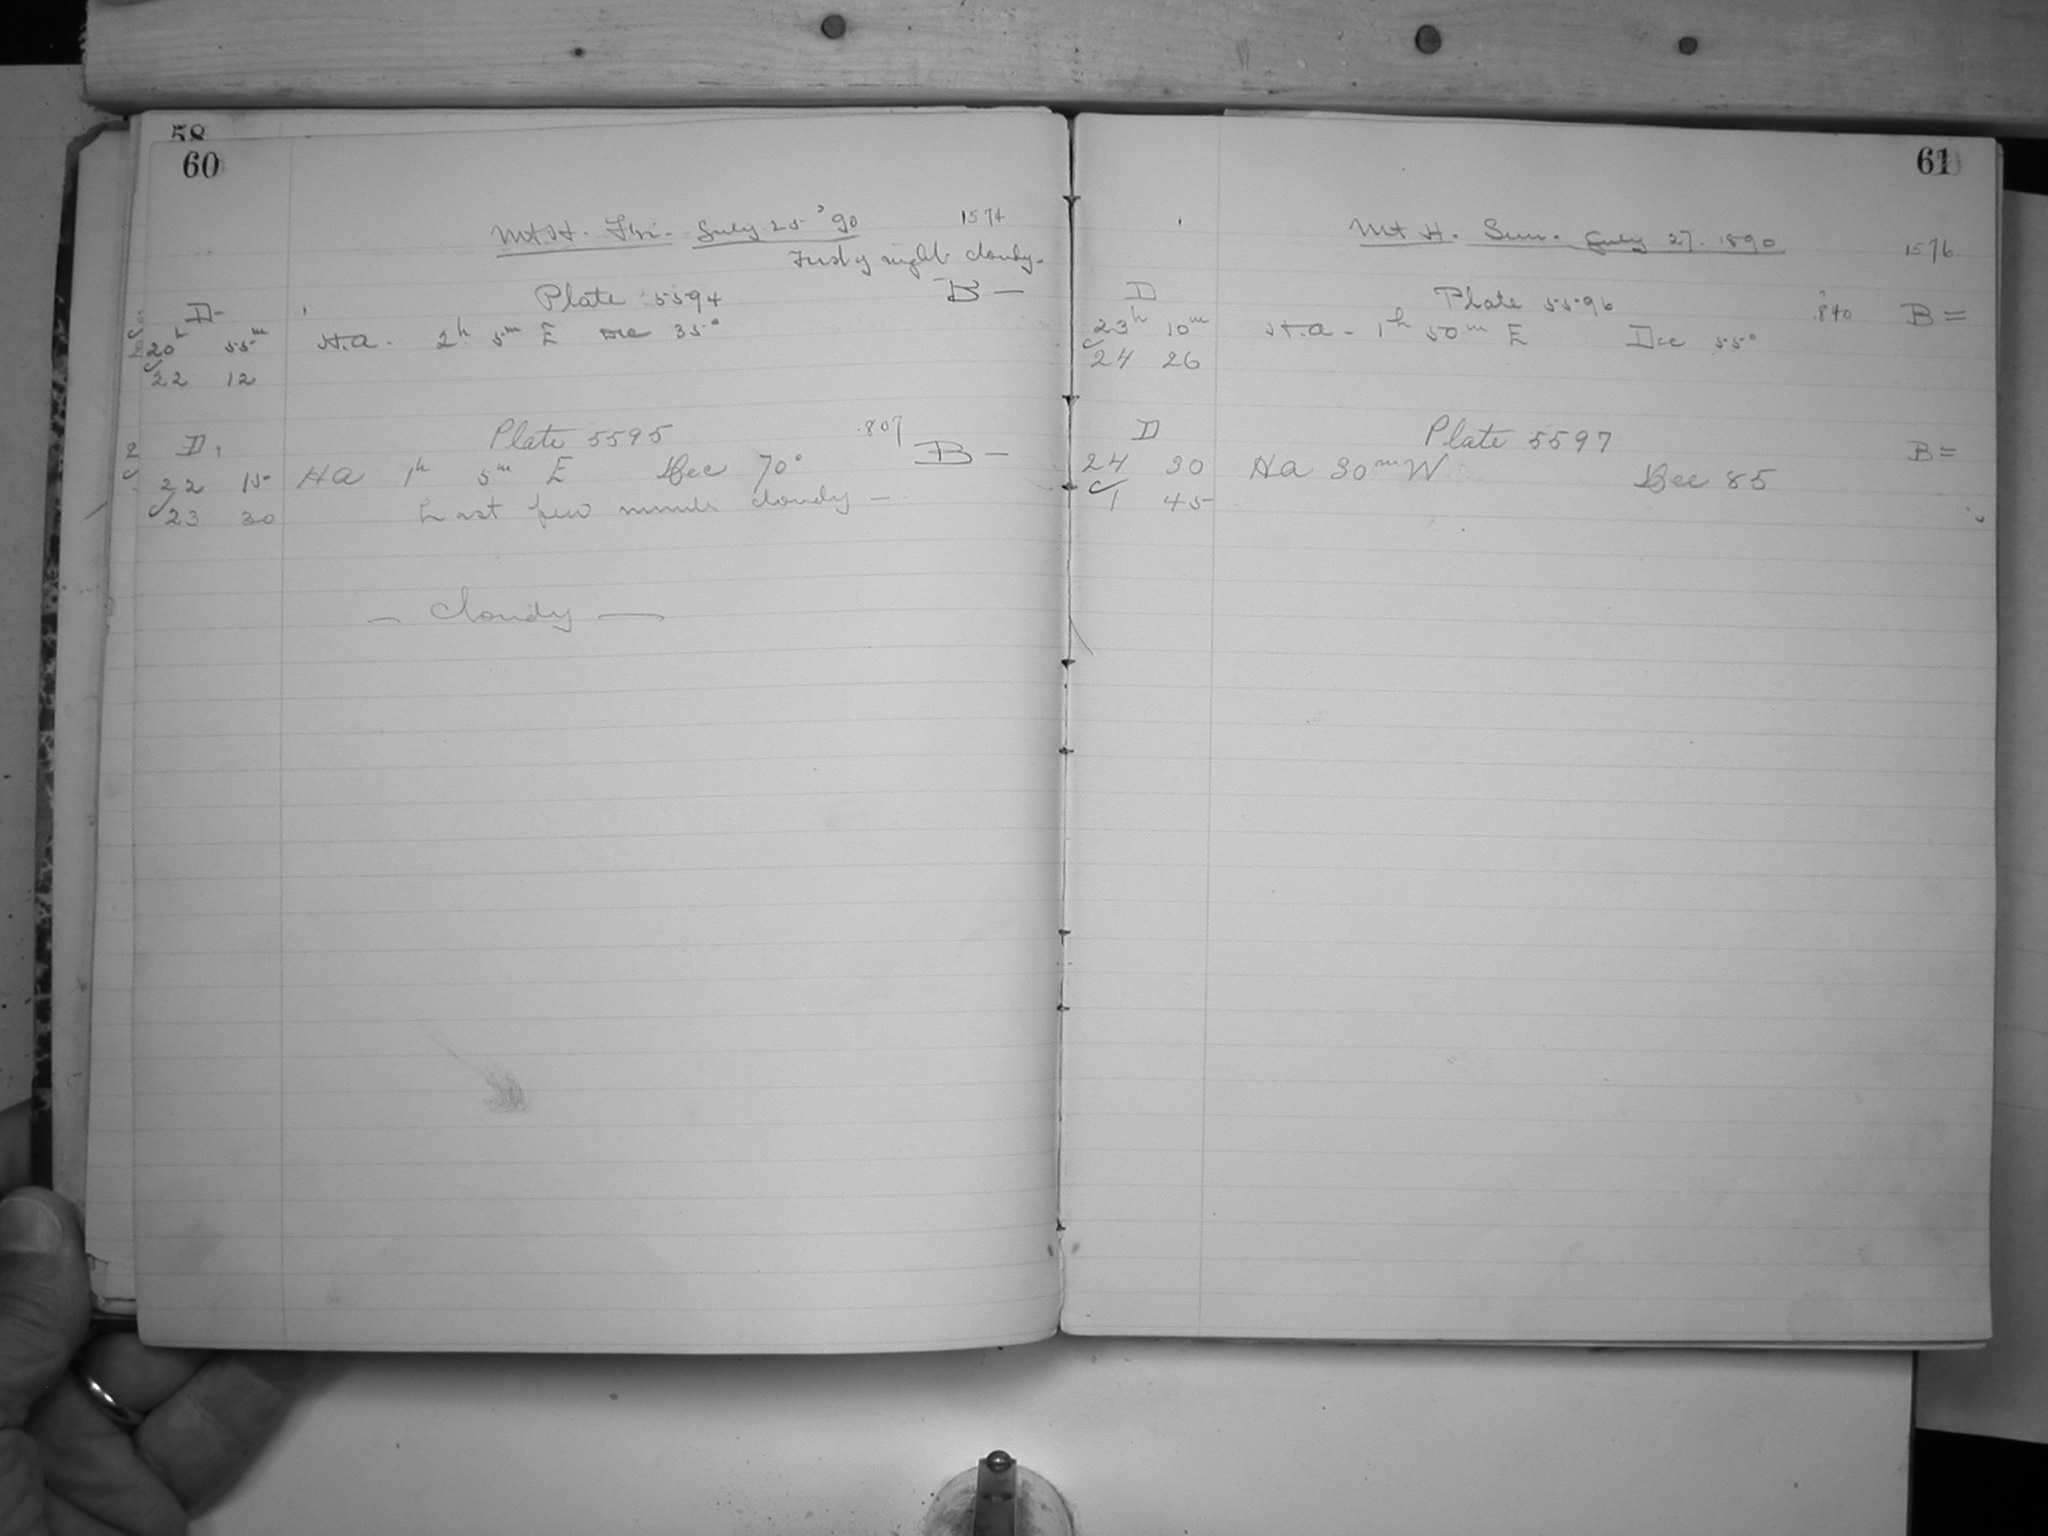 58
60
Mt H. Fri. July 25 '90 1574
First of night cloudy.
Plate 5594 B -
D
20h 55m H.A. 2h 5m E Dec 35°
22 12
Plate 5595 .807 B -
D
22 15 HA 1h 5m E Dec 70°
23 30 Last few minutes cloudy -
- Cloudy -
61
Mt H. Sun. July 27. 1890 1576
D Plate 5596 .840 B =
23h 10m H.A - 1h 50m E Dec 55°
24 26
D Plate 5597 B =
24 30 HA 30m W Dec 85
1 45